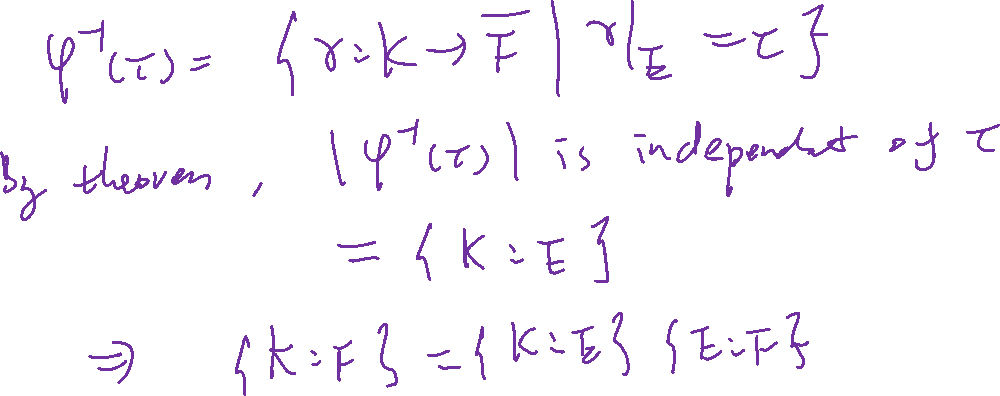 φ⁻¹(τ) = { γ: K → F̅ | γ|_E = τ }
By theorem, |φ⁻¹(τ)| is independent of τ
= { K : E }
⇒ { K : F } = { K : E } { E : F }